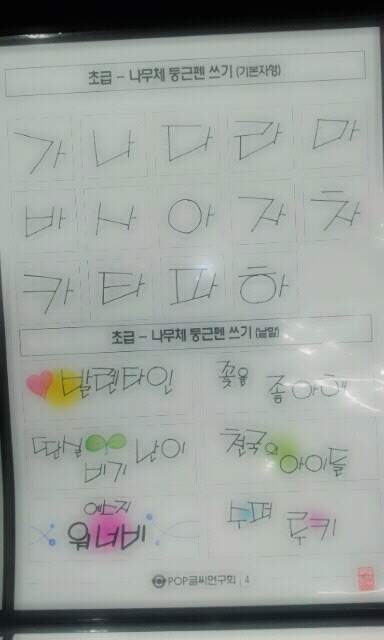 초급 - 나무체 둥근펜 쓰기 (기본자형)
가 나 다 라 마
바 사 아 자 차
카 타 파 하
초급 - 나무체 둥근펜 쓰기 (낱말)
발렌타인
꽃을 좋아해
비기 난이
천국의 아이들
슈퍼 루키
POP글씨연구회 4